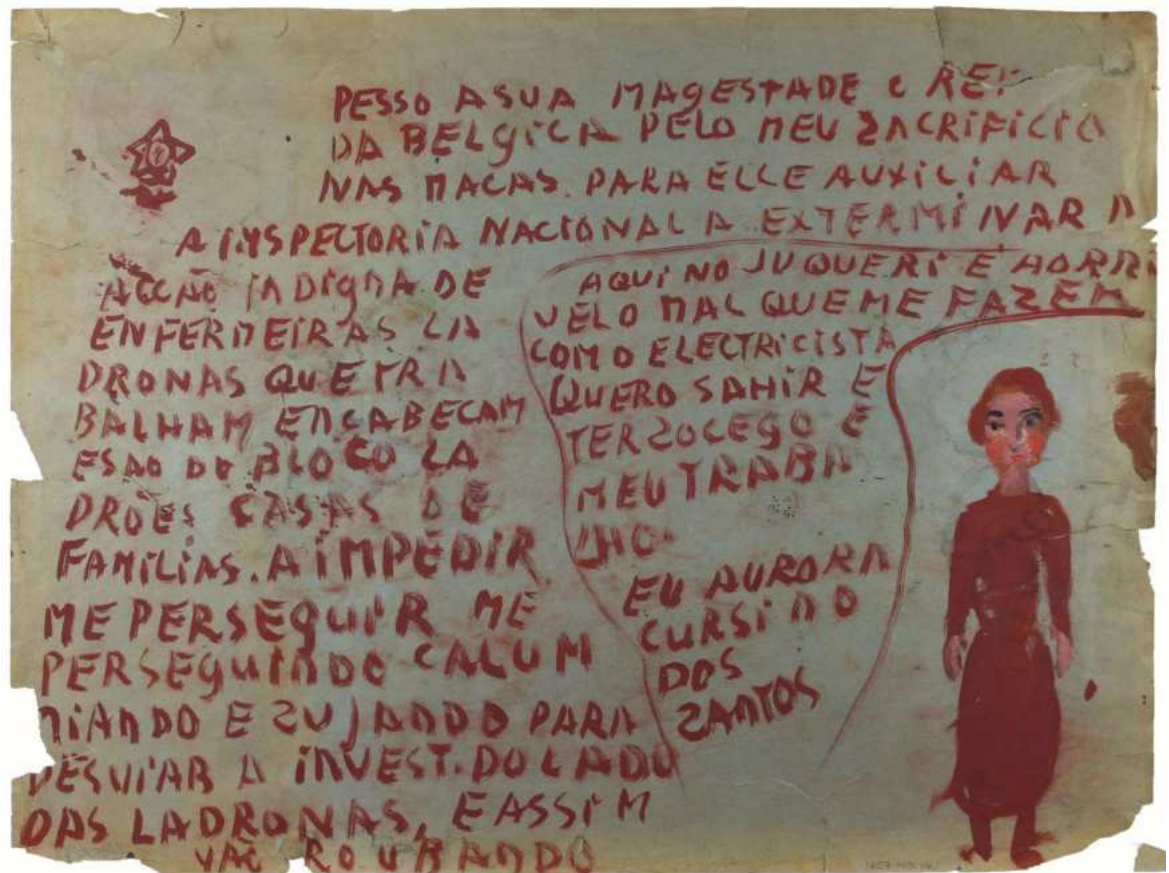 PESSO A SUA MAGESTADE O REI
DA BELGICA PELO MEU ZACRIFICIO
NAS MACAS. PARA ELLE AUXILIAR
A INSPECTORIA NACIONAL A EXTERMINAR A
ACCÃO INDIGNA DE
ENFERMEIRAS LA
DRONAS QUE TRA
BALHAM ENCABECAM
ESAO DO BLOCO LA
DRÕES CASAS DE
FAMILIAS. A IMPEDIR
ME PERSEGUIR ME
PERSEGUINDO CALUM
NIANDO E ZUJANDO PARA
DESVIAR A INVEST. DO LADO
DAS LADRONAS, E ASSIM
VÃO ROUBANDO
AQUI NO JUQUERI É HORRI
VEL O MAL QUE ME FAZEM
COM O ELECTRICISTA
QUERO SAHIR E
TER ZOCEGO E
MEU TRABA
LHO.
EU AURORA
CURSINO
DOS
ZANTOS